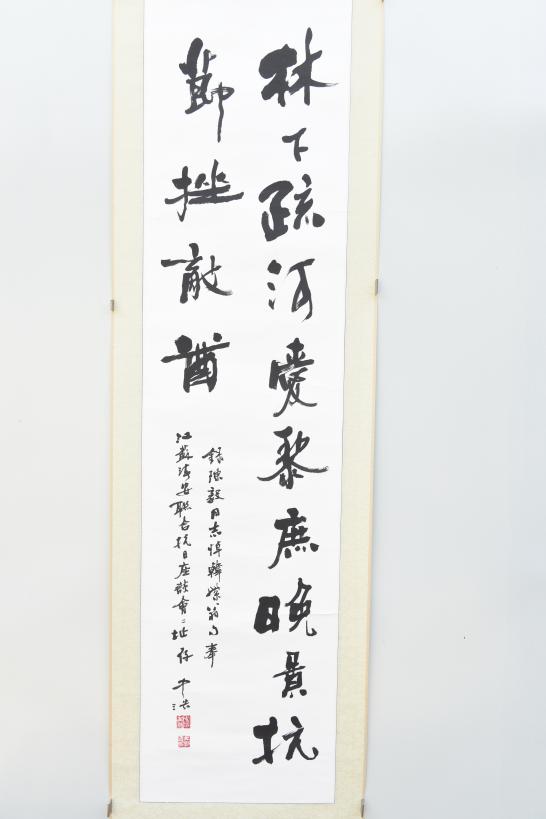 林下疏河愛黎庶晚景抗
節挫敵酋
錄陳毅同志悼韓紫翁句奉
江蘇海安聯合抗日座談會〻址存